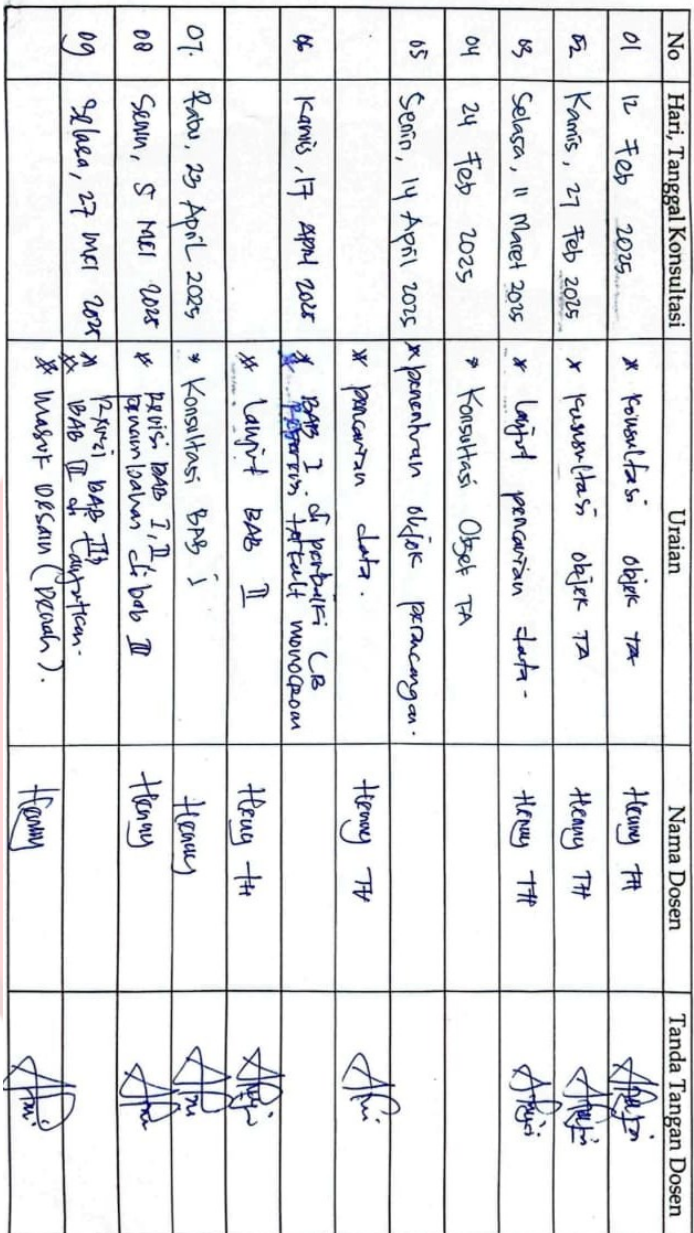 No Hari, Tanggal Konsultasi Uraian Nama Dosen Tanda Tangan Dosen
01 12 Feb 2025 * Konsultasi objek TA Henny TH
02 Kamis, 27 Feb 2025 * Konsultasi objek TA Henny TH
03 Selasa, 11 Maret 2025 * lanjut pencarian data - Henny TH
04 24 Feb 2025 * Konsultasi Objek TA
05 Senin, 14 April 2025 * penentuan objek perancangan.
* pencarian data. Henny TH
06 Kamis, 17 April 2025 * BAB I di perbaiki (LB
monocrom
* Lanjut BAB II Henny TH
07. Rabu, 23 April 2025 * Konsultasi BAB I Henny
08 Senin, 5 MEI 2025 * Revisi BAB I, II Henny
penambahan di bab II
09 Selasa, 27 MEI 2025 * Revisi BAB II
* BAB III di lanjutkan.
* Masuk Desain (Denah). Henny